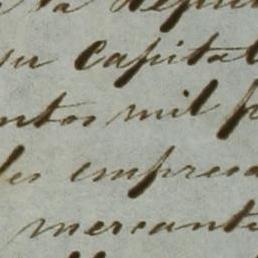 la Repu
su capital
ntos mil p
les empresa
mercanti